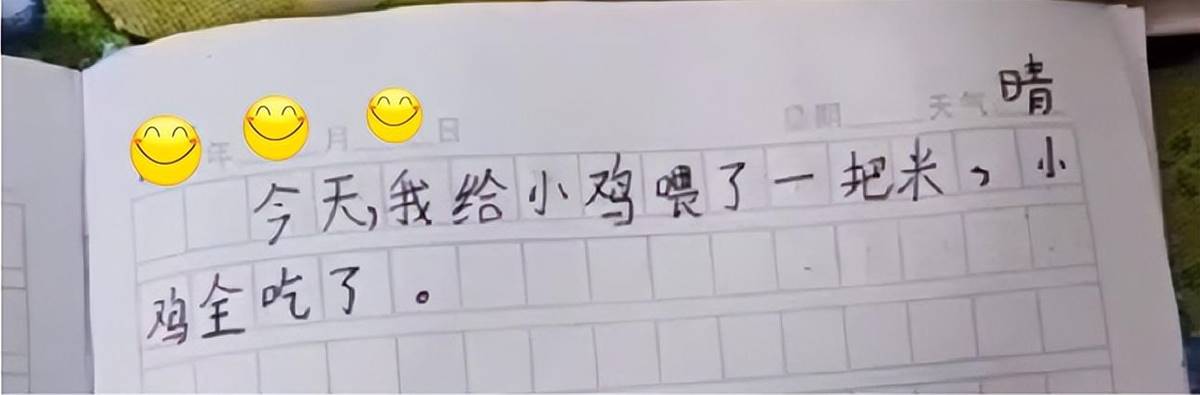 年 月 日 星期 天气 晴
今天,我给小鸡喂了一把米,小
鸡全吃了。